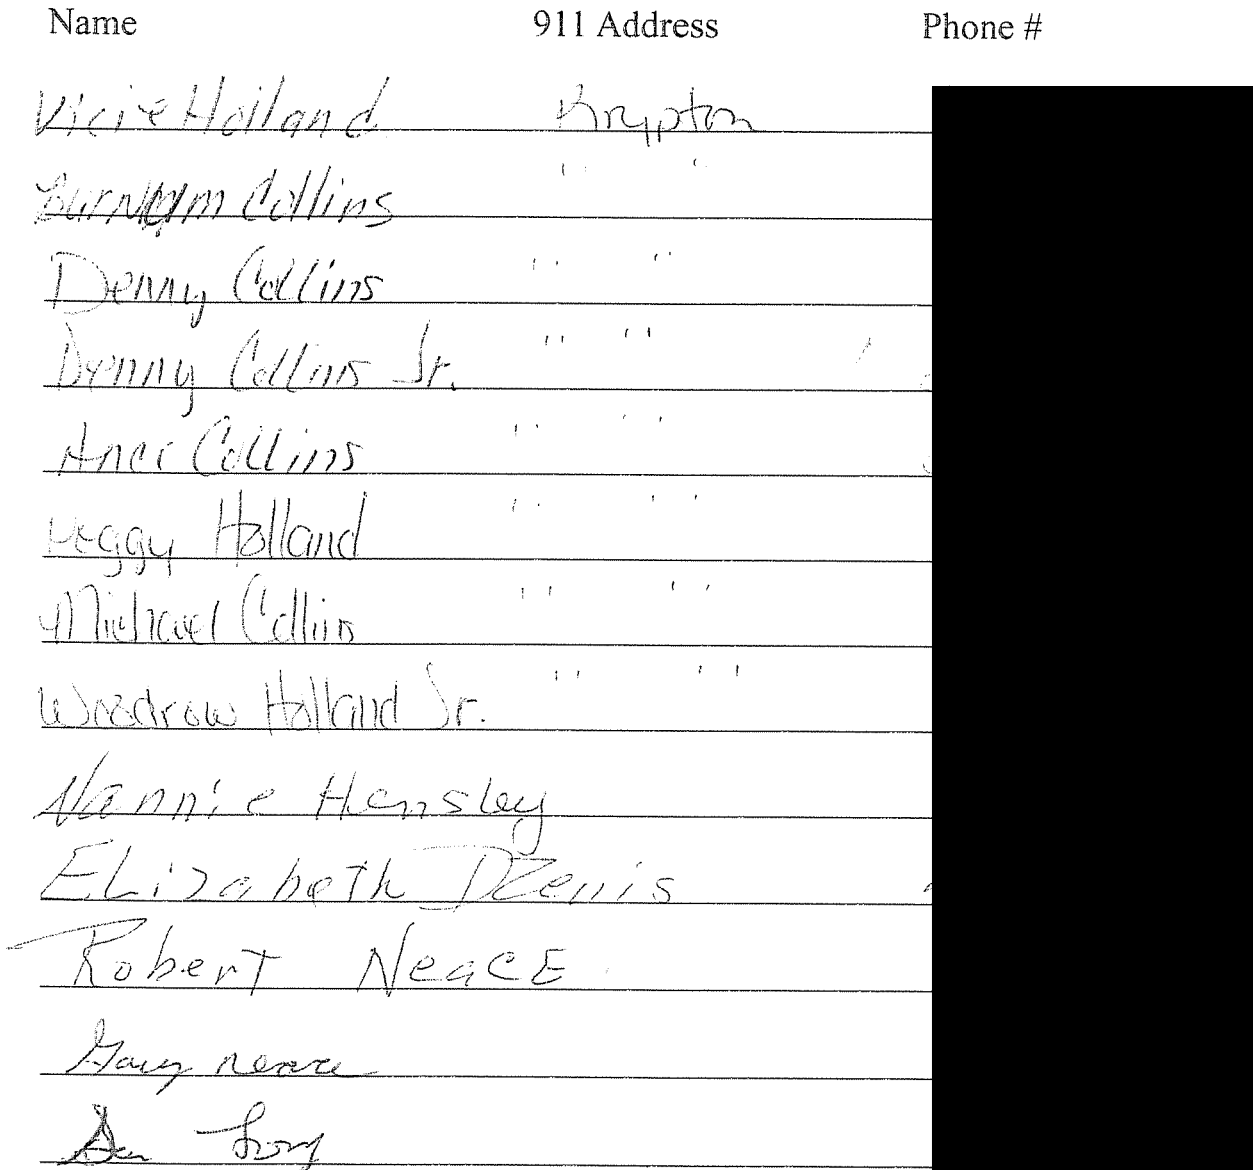 Name 911 Address Phone #
Vicie Holland Krypton
Burnam Collins " "
Denny Collins " "
Denny Collins Jr. " "
Collins " "
Peggy Holland " "
Michael Collins " "
Woodrow Holland Jr. " "
Nannie Hensley
ELizabeth DZenis
Robert NeacE
Gary neace